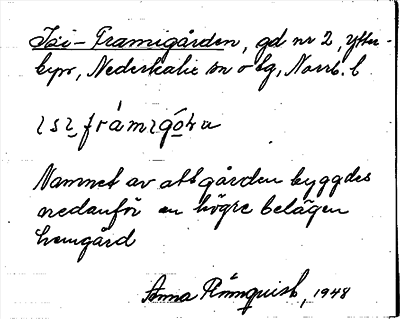 Isi-Framigården, gd nr 2, Ytter-
byn, Nederkalix sn o tg, Norrb. l.
ɩsɩ frámɩgó
Namnet av att gården byggdes
nedanför en högre belägen
hemgård
Anna Rönnquist, 1948